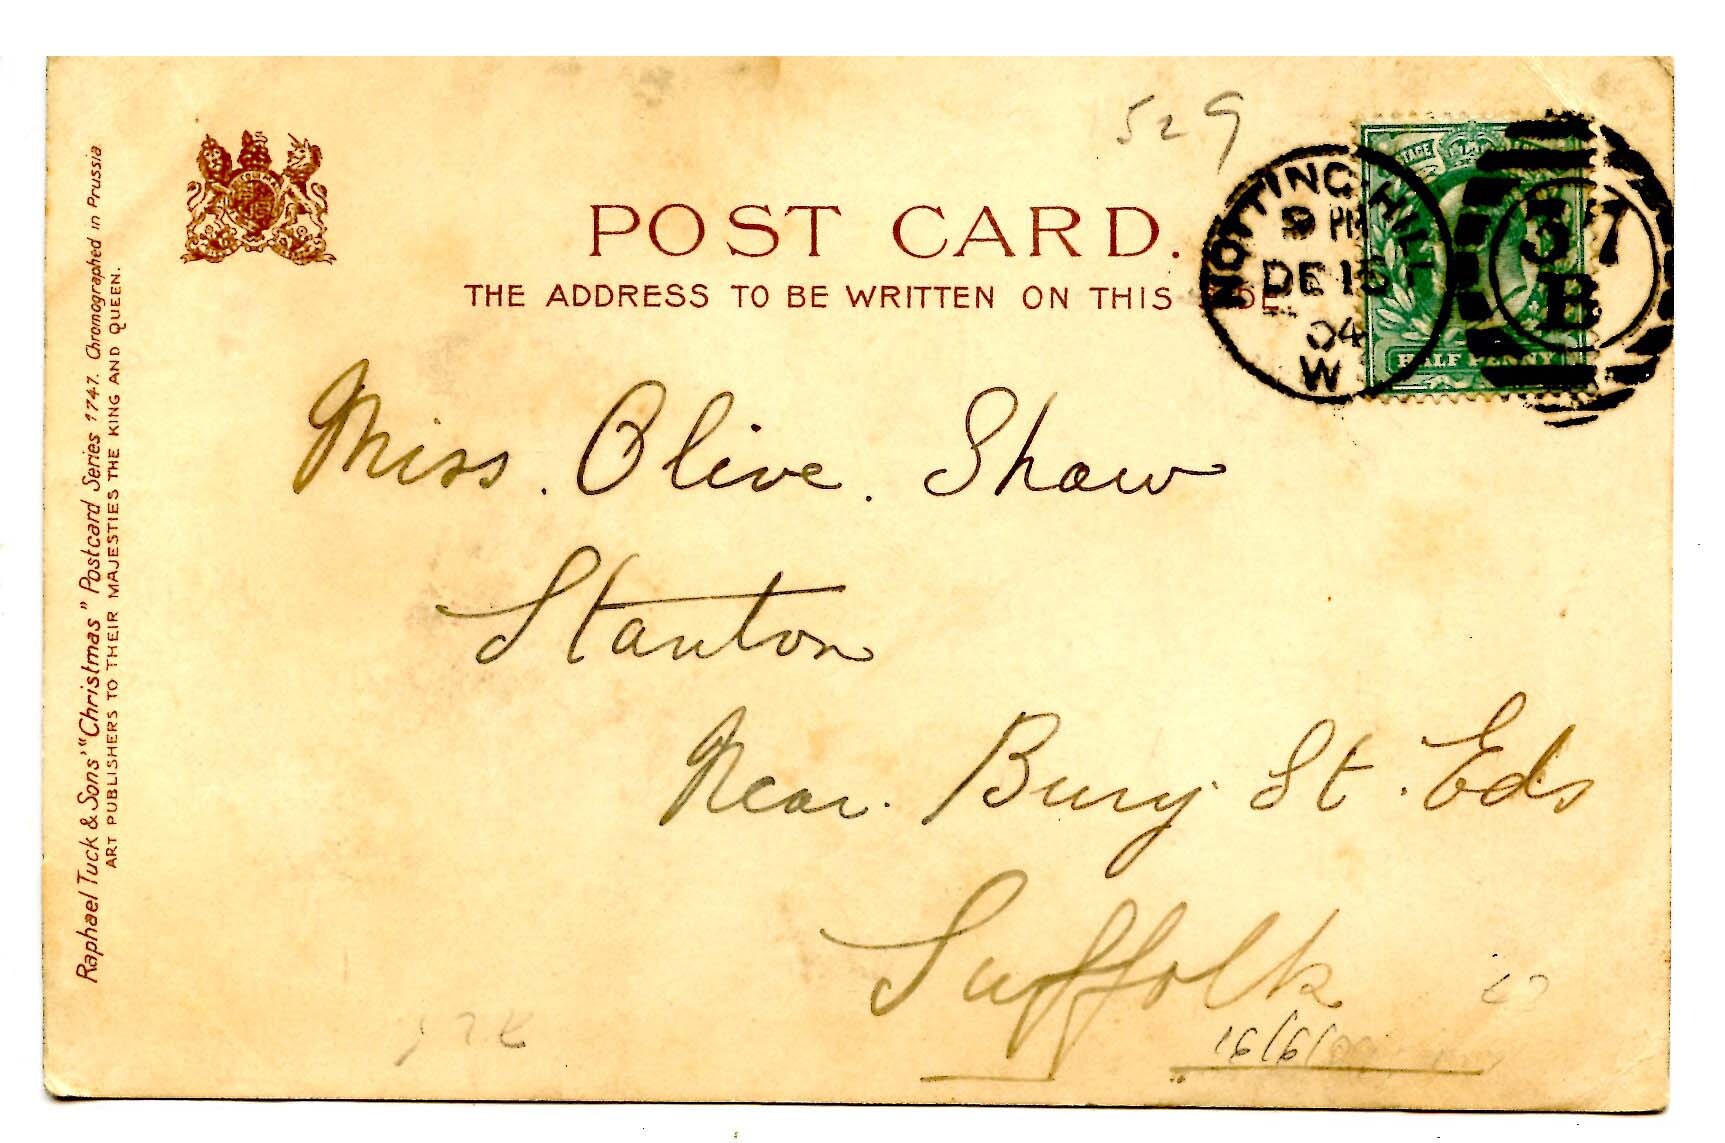 529
POST CARD.
THE ADDRESS TO BE WRITTEN ON THIS
NOTTING HILL
9 PM
DE 15
04
W
37
B
HALF PENNY
Miss. Olive. Shaw
Stanton
Near. Bury St. Eds
Suffolk
16/6/
Raphael Tuck & Sons' "Christmas" Postcard Series 1747. Chromographed in Prussia
ART PUBLISHERS TO THEIR MAJESTIES THE KING AND QUEEN.